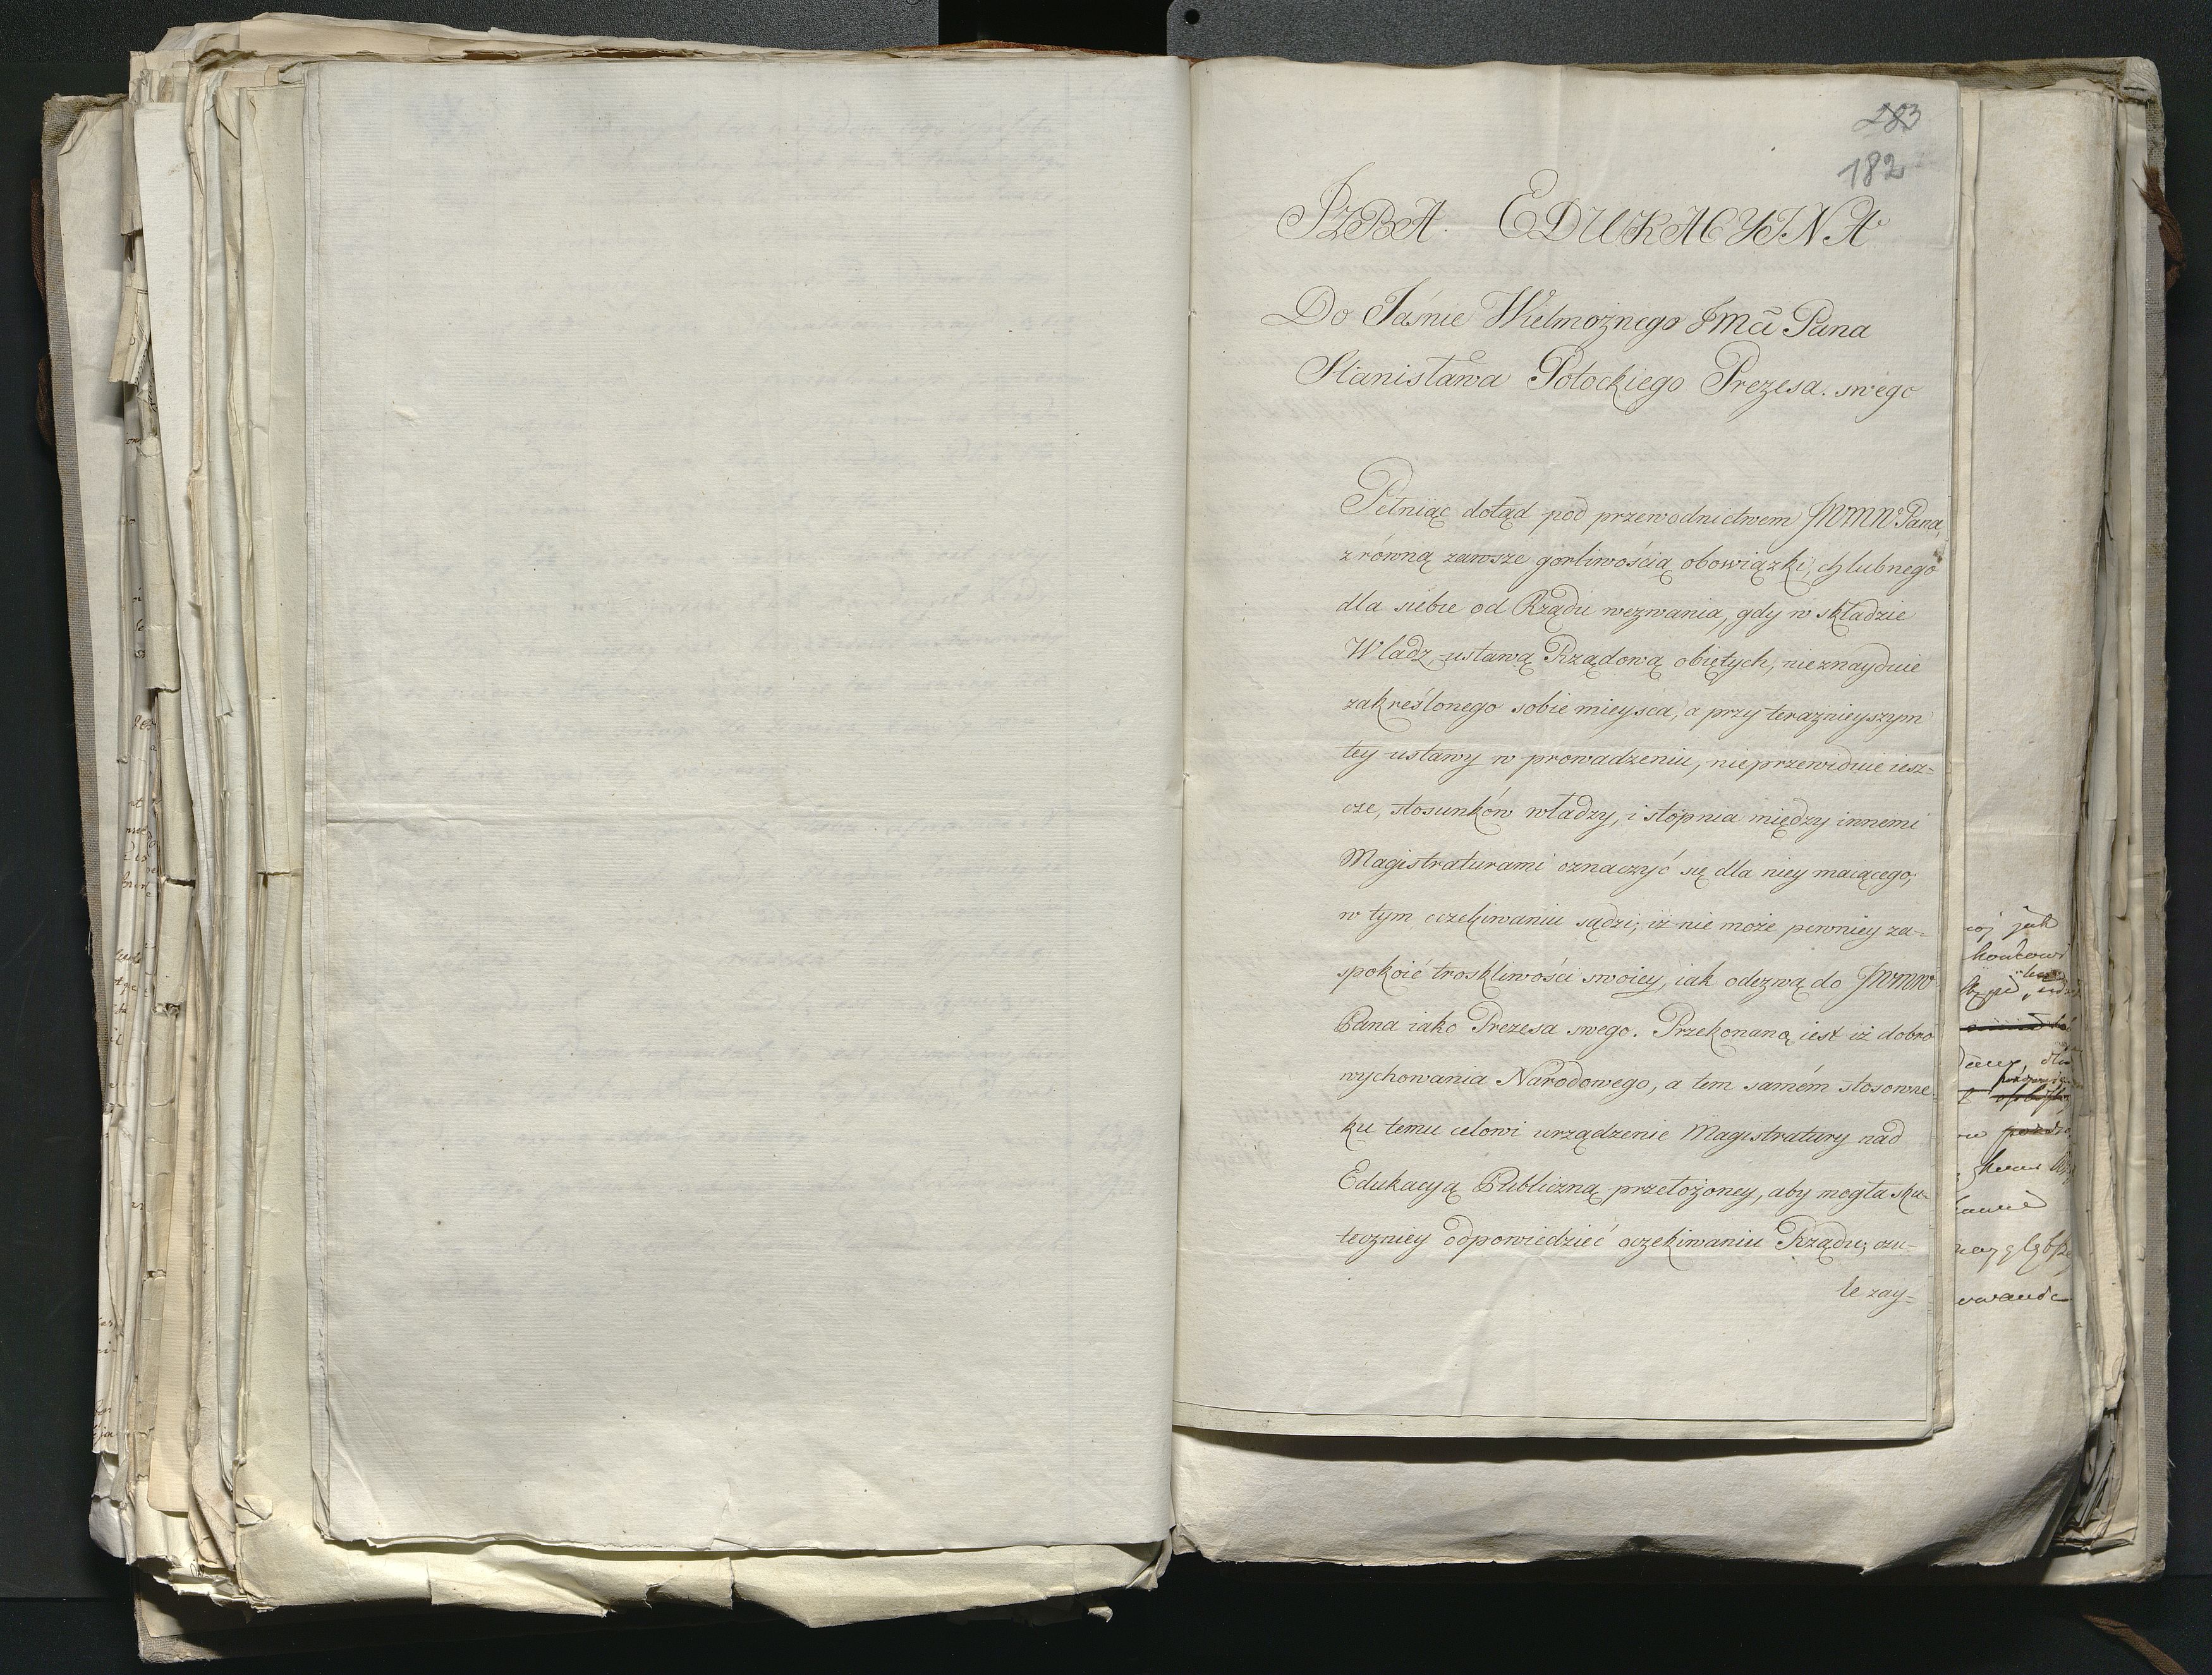 283
182
IZBA EDUKACYINA
Do Jaśnie Wielmożnego Jmci Pana
Stanisława Potockiego Prezesa swego
Pełniąc dotąd pod przewodnictwem JWMW Pana,
z równą zawsze gorliwością obowiązki, chlubnego
dla siebie od Rządu wezwania, gdy w składzie
Władz ustawą Rządową obiętych, nieznayduie
zakreślonego sobie mieysca, a przy teraznieyszym
tey ustawy w prowadzeniu, nieprzewiduie iesz=
cze, stosunków władzy, i stopnia między innemi
Magistraturami oznaczyć się dla niey maiącego;
w tym oczekiwaniu sądzi; iż nie może pewniey za=
spokoić troskliwości swoiey, iak odezwą do JWMW
Pana iako Prezesa swego. Przekonaną iest iż dobro
wychowania Narodowego, a tem samém stosowne
ku temu celowi urządzenie Magistratury nad
Edukacyą Publiczną przełożoney, aby mogła sku=
teczniey odpowiedzieć oczekiwaniu Rządu; czu=
le zay=